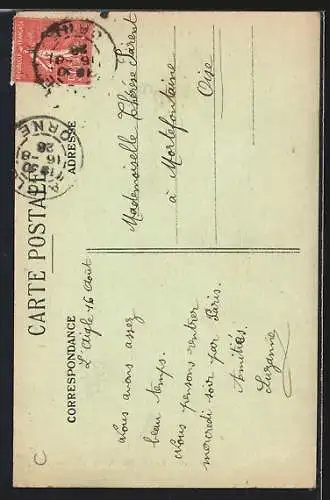 CARTE POSTALE
CORRESPONDANCE
L'Aigle 16 Août
Nous avons assez
beau temps.
Nous pensons rentrer
mercredi soir par Paris.
Amitiés.
Suzanne
ADRESSE
Mademoiselle Thérèse Parent
à Mortefontaine
Oise
ORNE
C